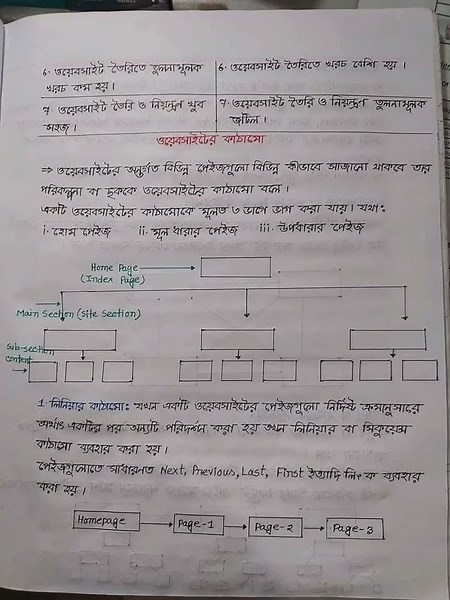 ৬. ওয়েবসাইট তৈরিতে তুলনামূলক
খরচ কম হয়।
৬. ওয়েবসাইট তৈরিতে খরচ বেশি হয়।
৭. ওয়েবসাইট তৈরি ও নিয়ন্ত্রণ খুব
সহজ।
৭. ওয়েবসাইট তৈরি ও নিয়ন্ত্রণ তুলনামূলক
জটিল।
ওয়েবসাইটের কাঠামো
⇒ ওয়েবসাইটের অন্তর্গত বিভিন্ন পেইজগুলো বিভিন্ন কীভাবে সাজানো থাকবে তার
পরিকল্পনা বা ছককে ওয়েবসাইটের কাঠামো বলে।
একটি ওয়েবসাইটের কাঠামোকে মূলত ৩ ভাগে ভাগ করা যায়। যথা:
i. হোম পেইজ ii. মূল ধারার পেইজ iii. উপধারার পেইজ
Home Page
(Index Page)
Main Section (Site Section)
Sub-section
content
1. লিনিয়ার কাঠামো: যখন একটি ওয়েবসাইটের পেইজগুলো নির্দিষ্ট ক্রমানুসারে
অর্থাৎ একটির পর অন্যটি পরিদর্শন করা হয় তখন লিনিয়ার বা সিকুয়েন্স
কাঠামো ব্যবহার করা হয়।
পেইজগুলোতে সাধারনত Next, Previous, Last, First ইত্যাদি লিংক ব্যবহার
করা হয়।
Homepage Page-1 Page-2 Page-3